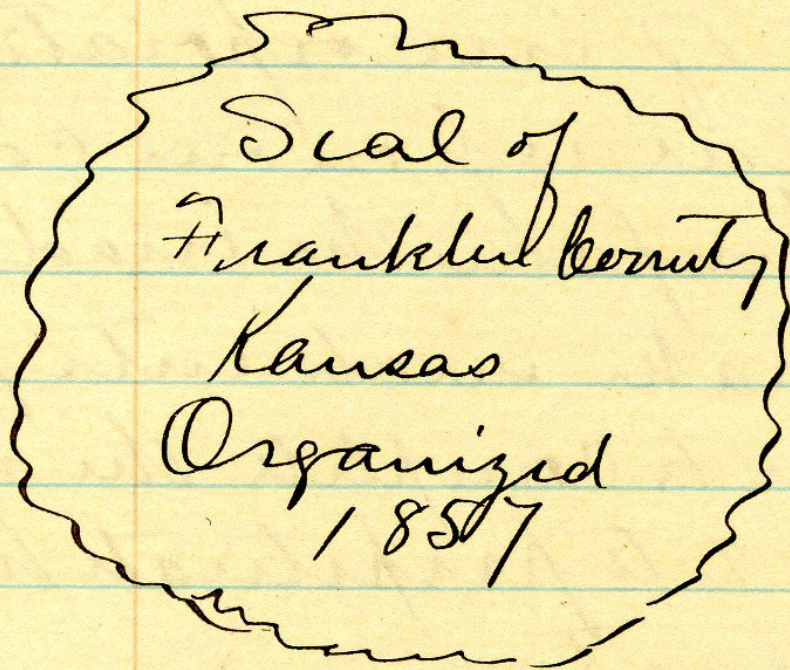 Seal of
Franklin County
Kansas
Organized
1857